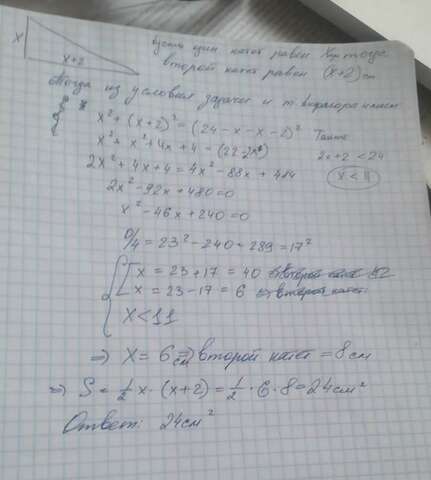 x
x+2
Пусть один катет равен x см, тогда
второй катет равен (x+2) см
Тогда из условия задачи и т. Пифагора имеем
x² + (x+2)² = (24 - x - x - 2)²
Также
x² + x² + 4x + 4 = (22 - 2x)²
2x+2 < 24
2x² + 4x + 4 = 4x² - 88x + 484
x < 11
2x² - 92x + 480 = 0
x² - 46x + 240 = 0
D/4 = 23² - 240 = 289 = 17²
x = 23 + 17 = 40
x = 23 - 17 = 6
x < 11
⇒ x = 6 см ⇒ второй катет = 8 см
⇒ S = 1/2 x · (x+2) = 1/2 · 6 · 8 = 24 см²
Ответ: 24 см²